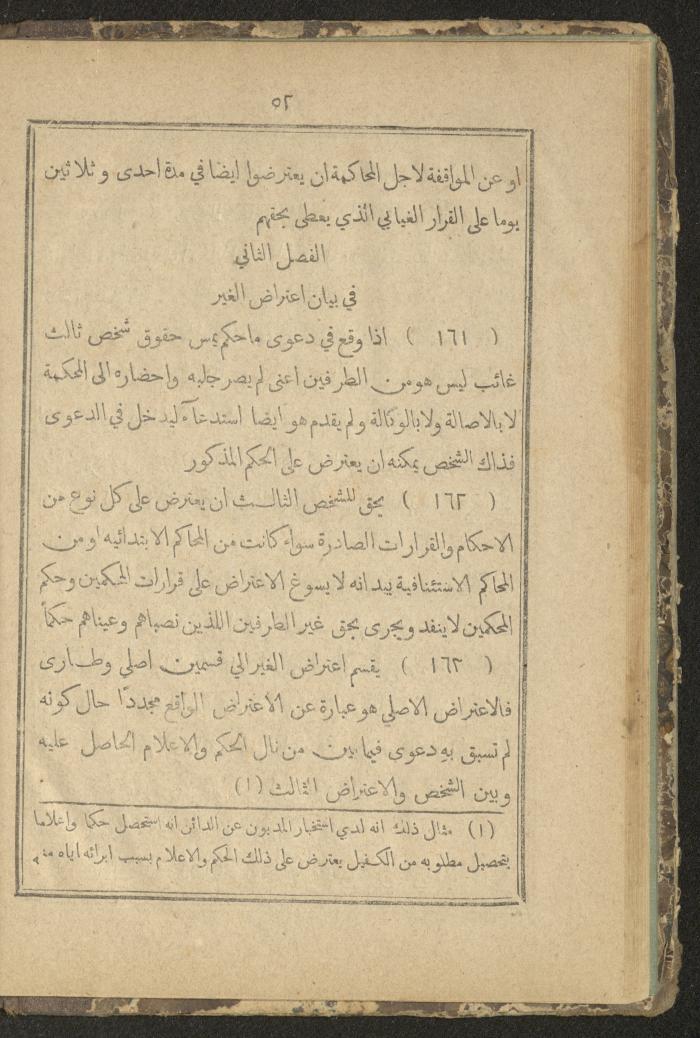 ٥٢
او عن المواقفة لاجل المحاكمة ان يعترضوا ايضا في مدة احدى وثلاثين
يوما على القرار الغيابي الذي يعطى بحقهم
الفصل الثاني
في بيان اعتراض الغير
( ١٦١ ) اذا وقع في دعوى ما حكم يمس حقوق شخص ثالث
غائب ليس هو من الطرفين اعنى لم يصر جلبه واحضاره الى المحكمة
لا بالاصالة ولا بالوكالة ولم يقدم هو ايضا استدعآء ليدخل في الدعوى
فذاك الشخص يمكنه ان يعترض على الحكم المذكور
( ١٦٢ ) يحق للشخص الثالث ان يعترض على كل نوع من
الاحكام والقرارات الصادرة سواء كانت من المحاكم الابتدائيه او من
المحاكم الاستئنافية بيد انه لا يسوغ الاعتراض على قرارات المحكمين وحكم
المحكمين لا ينفد ويجرى بحق غير الطرفين اللذين نصباهم وعيناهم حكماً
( ١٦٢ ) يقسم اعتراض الغير الي قسمين اصلي وطارى
فالاعتراض الاصلي هو عبارة عن الاعتراض الواقع مجدداً حال كونه
لم تسبق به دعوى فيما بين من نال الحكم والاعلام الحاصل عليه
وبين الشخص والاعتراض الثالث (١)
(١) مثال ذلك انه لدي استخبار المديون عن الدائن انه استحصل حكما واعلاما
بتحصيل مطلوبه من الكفيل يعترض على ذلك الحكم والاعلام بسبب ابرائه اياه منه